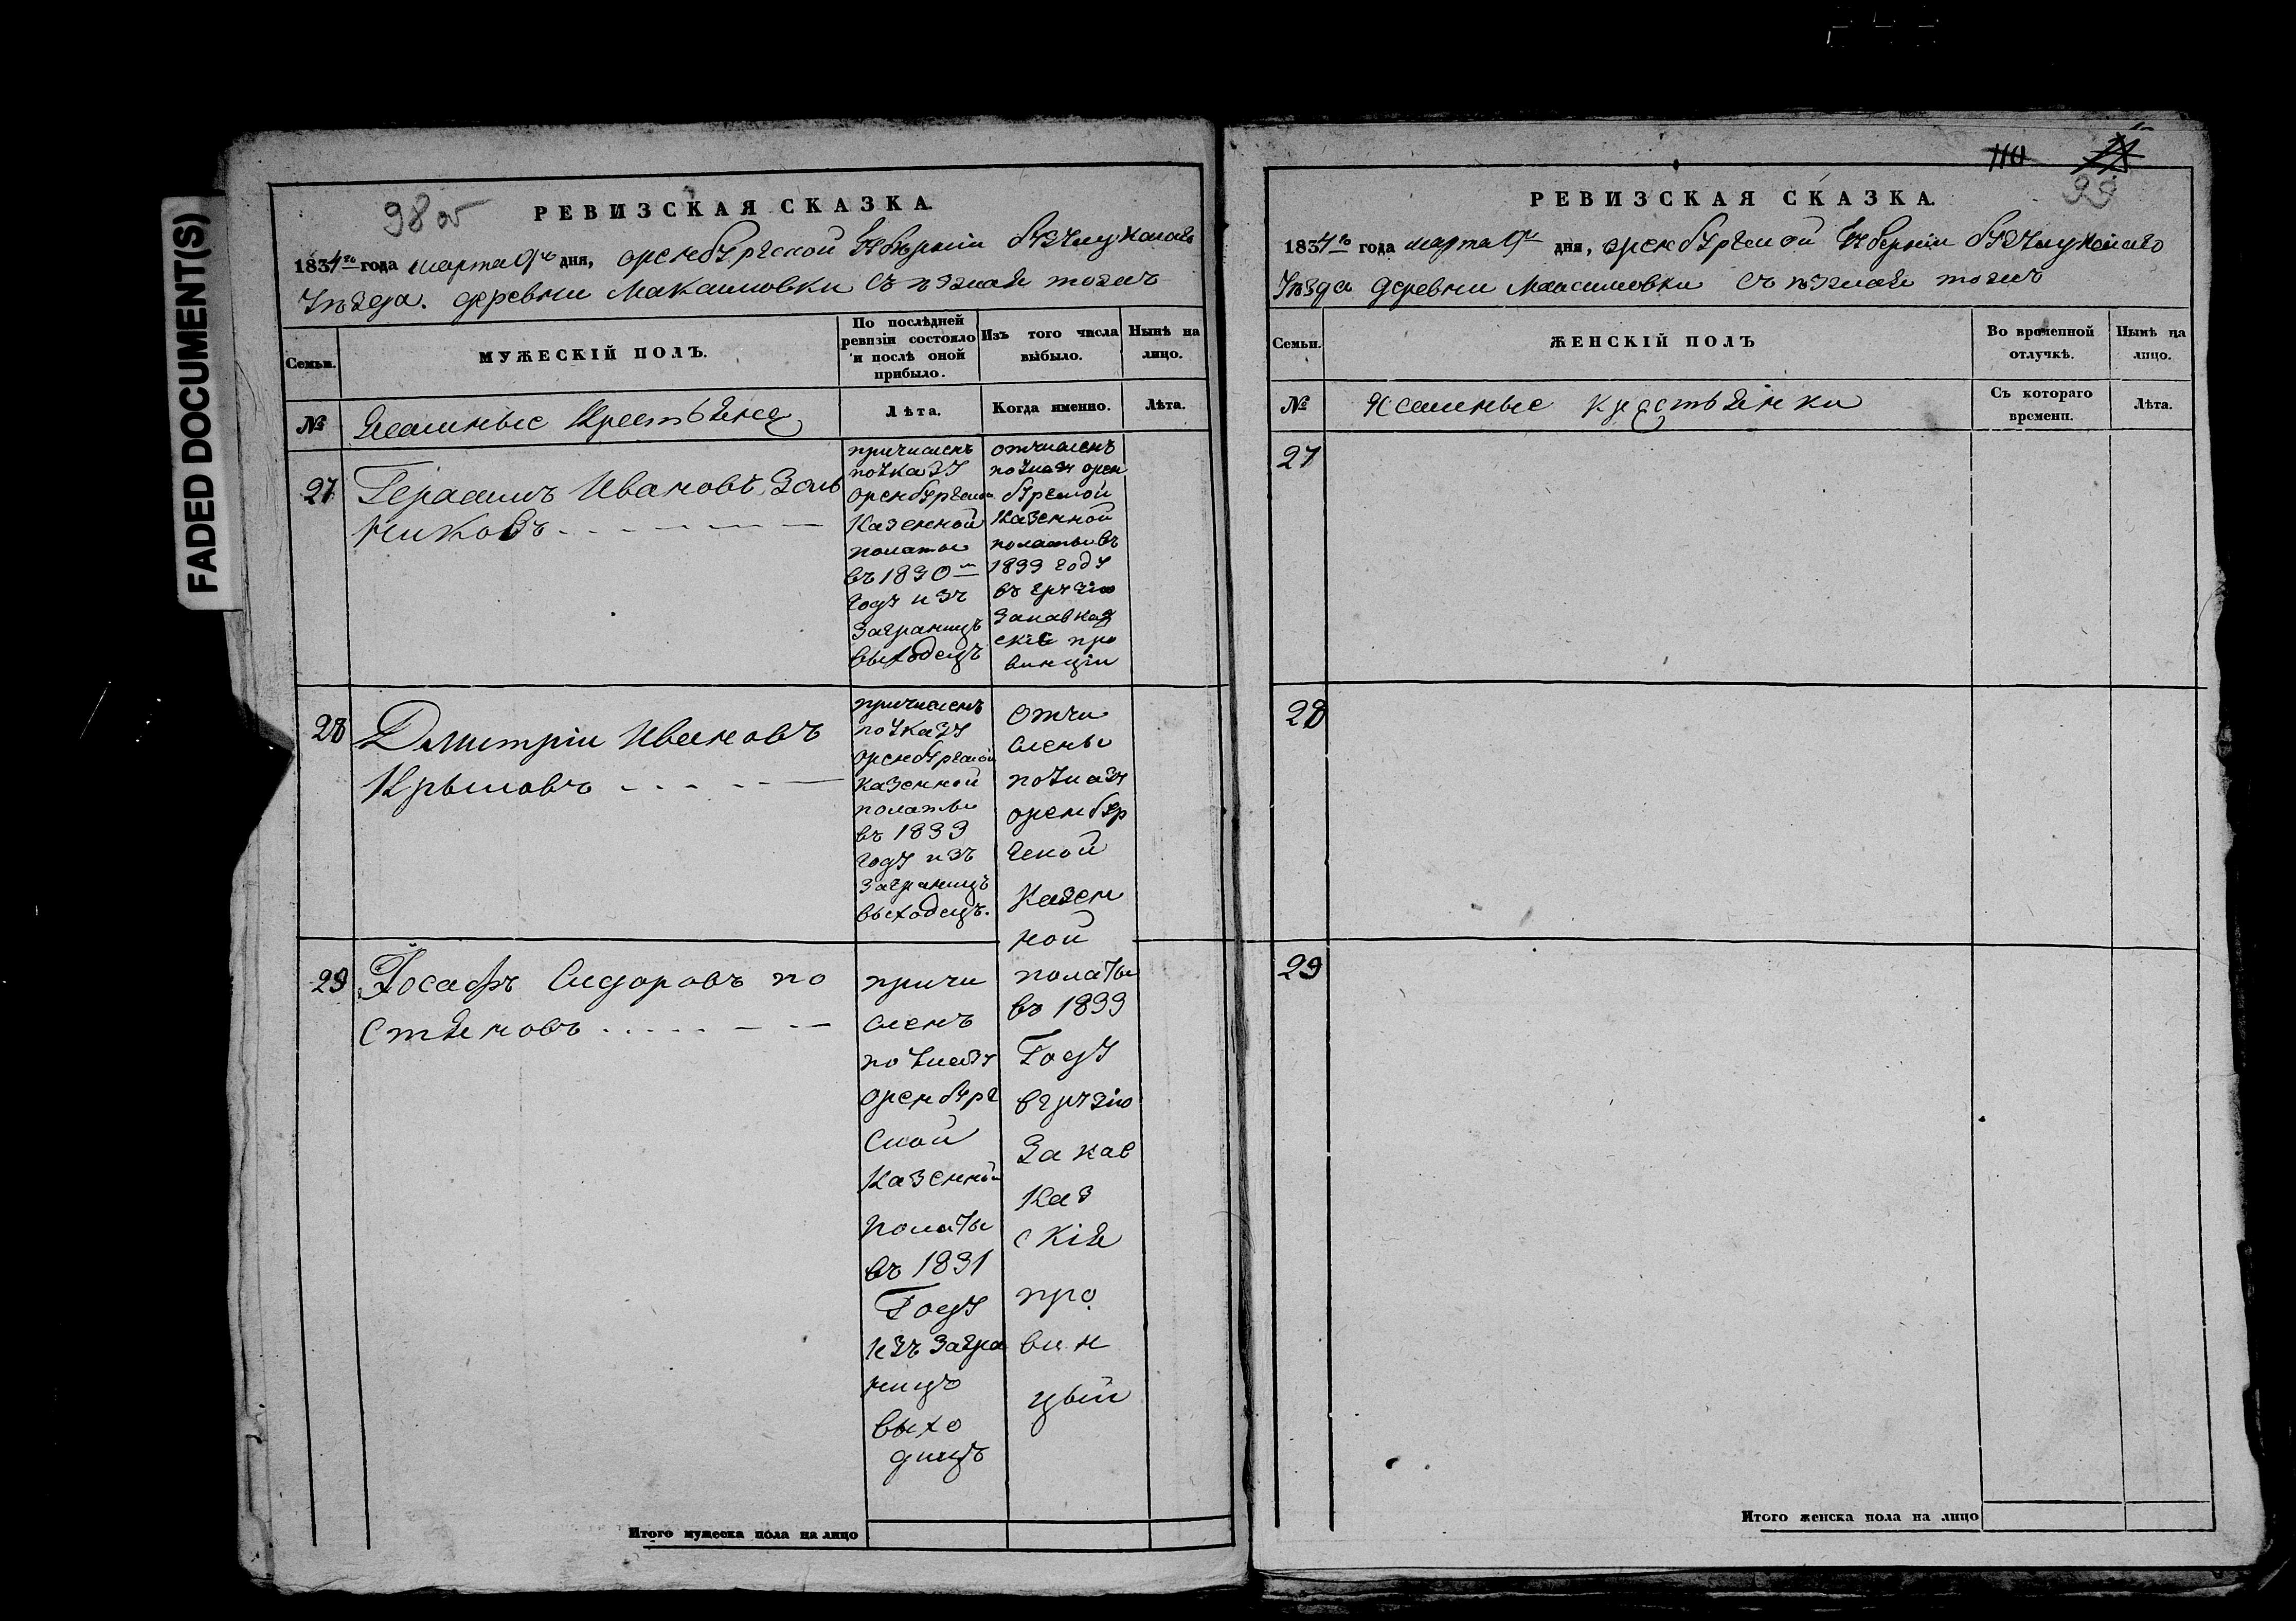 FADED DOCUMENT(S)
98 об
РЕВИЗСКАЯ СКАЗКА.
1834го года марта 9го дня, оренбургской Губернии бузулукскаго
Уезда. деревни Макаиловки
МУЖЕСКІЙ ПОЛЪ.
Семьи.
По послѣдней ревизіи состояло и послѣ оной прибыло.
Изъ того числа выбыло.
Нынѣ на лицо.
№
Ясашные Крестьяне
Лѣта.
Когда именно.
Лѣта.
27
Герасимъ Ивановъ
никовъ
причисленъ
по указу
оренбургской
Казенной
полаты
въ 1830м
году изъ
заграницъ
выходецъ
отчисленъ
по указу орен
бургской
Казенной
полаты въ
1833 году
въ грузію
Закавказ
скіе про
винціи
28
Дмитріи Ивановъ
Крыловъ
причисленъ
по указу
оренбургской
казенной
полаты
въ 1833
году изъ
заграницъ
выходецъ.
отчи
слены
по указу
оренбур
гской
Казен
ной
полаты
въ 1833
Году
в грузію
Закав
каз
скія
про
вин
цыи
29
Іосафъ Сидоровъ по
стяновъ
причи
сленъ
по указу
оренбург
ской
Казенной
полаты
въ 1831
Году
изъ загра
ницъ
выхо
дицъ
Итого мужеска пола на лицо
110
99
РЕВИЗСКАЯ СКАЗКА.
1834го года марта 9го дня, оренбургской Губерніи бузулукскаго
Уѣзда деревни Максимовки
Семьи.
ЖЕНСКІЙ ПОЛЪ
Во временной отлучкѣ.
Нынѣ на лицо.
№
Ясашные крестьянки
Съ котораго времени.
Лѣта.
27
28
29
Итого женска пола на лицо